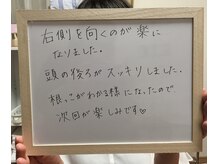 右側を向くのが楽に
なりました。
頭の後ろがスッキリしました。
根っこがわかる様になったので
次回が楽しみです♡